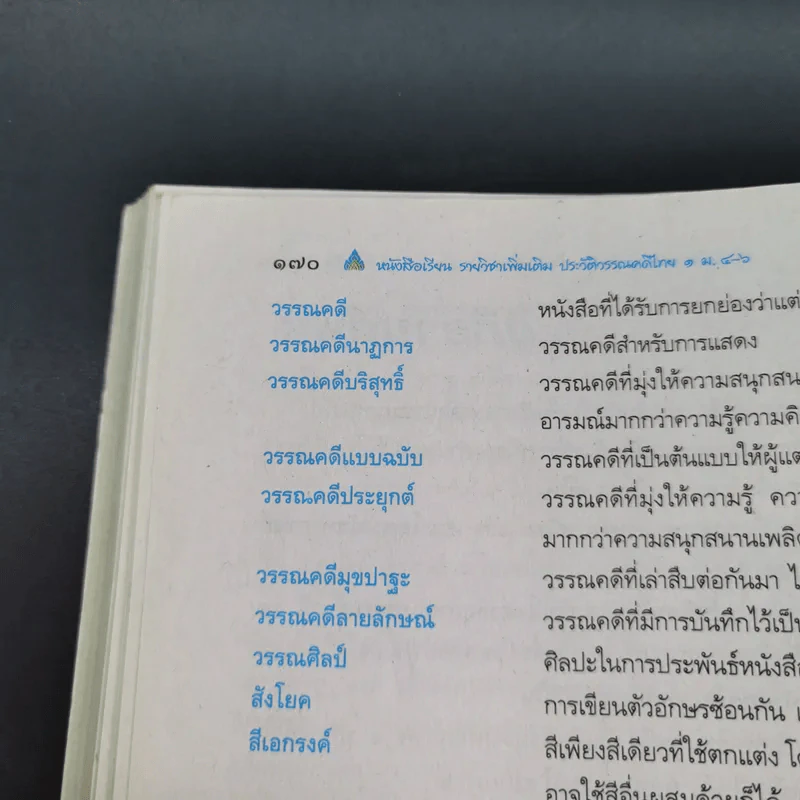 ๑๗๐ หนังสือเรียน รายวิชาเพิ่มเติม ประวัติวรรณคดีไทย ๑ ม. ๔-๖
วรรณคดี หนังสือที่ได้รับการยกย่องว่าแต่
วรรณคดีนาฏการ วรรณคดีสำหรับการแสดง
วรรณคดีบริสุทธิ์ วรรณคดีที่มุ่งให้ความสนุกสน
อารมณ์มากกว่าความรู้ความคิ
วรรณคดีแบบฉบับ วรรณคดีที่เป็นต้นแบบให้ผู้แต่
วรรณคดีประยุกต์ วรรณคดีที่มุ่งให้ความรู้ คว
มากกว่าความสนุกสนานเพลิด
วรรณคดีมุขปาฐะ วรรณคดีที่เล่าสืบต่อกันมา ไ
วรรณคดีลายลักษณ์ วรรณคดีที่มีการบันทึกไว้เป็น
วรรณศิลป์ ศิลปะในการประพันธ์หนังสือ
สังโยค การเขียนตัวอักษรซ้อนกัน เ
สีเอกรงค์ สีเพียงสีเดียวที่ใช้ตกแต่ง โด
อาจใช้สีอื่นผสมด้วยก็ได้